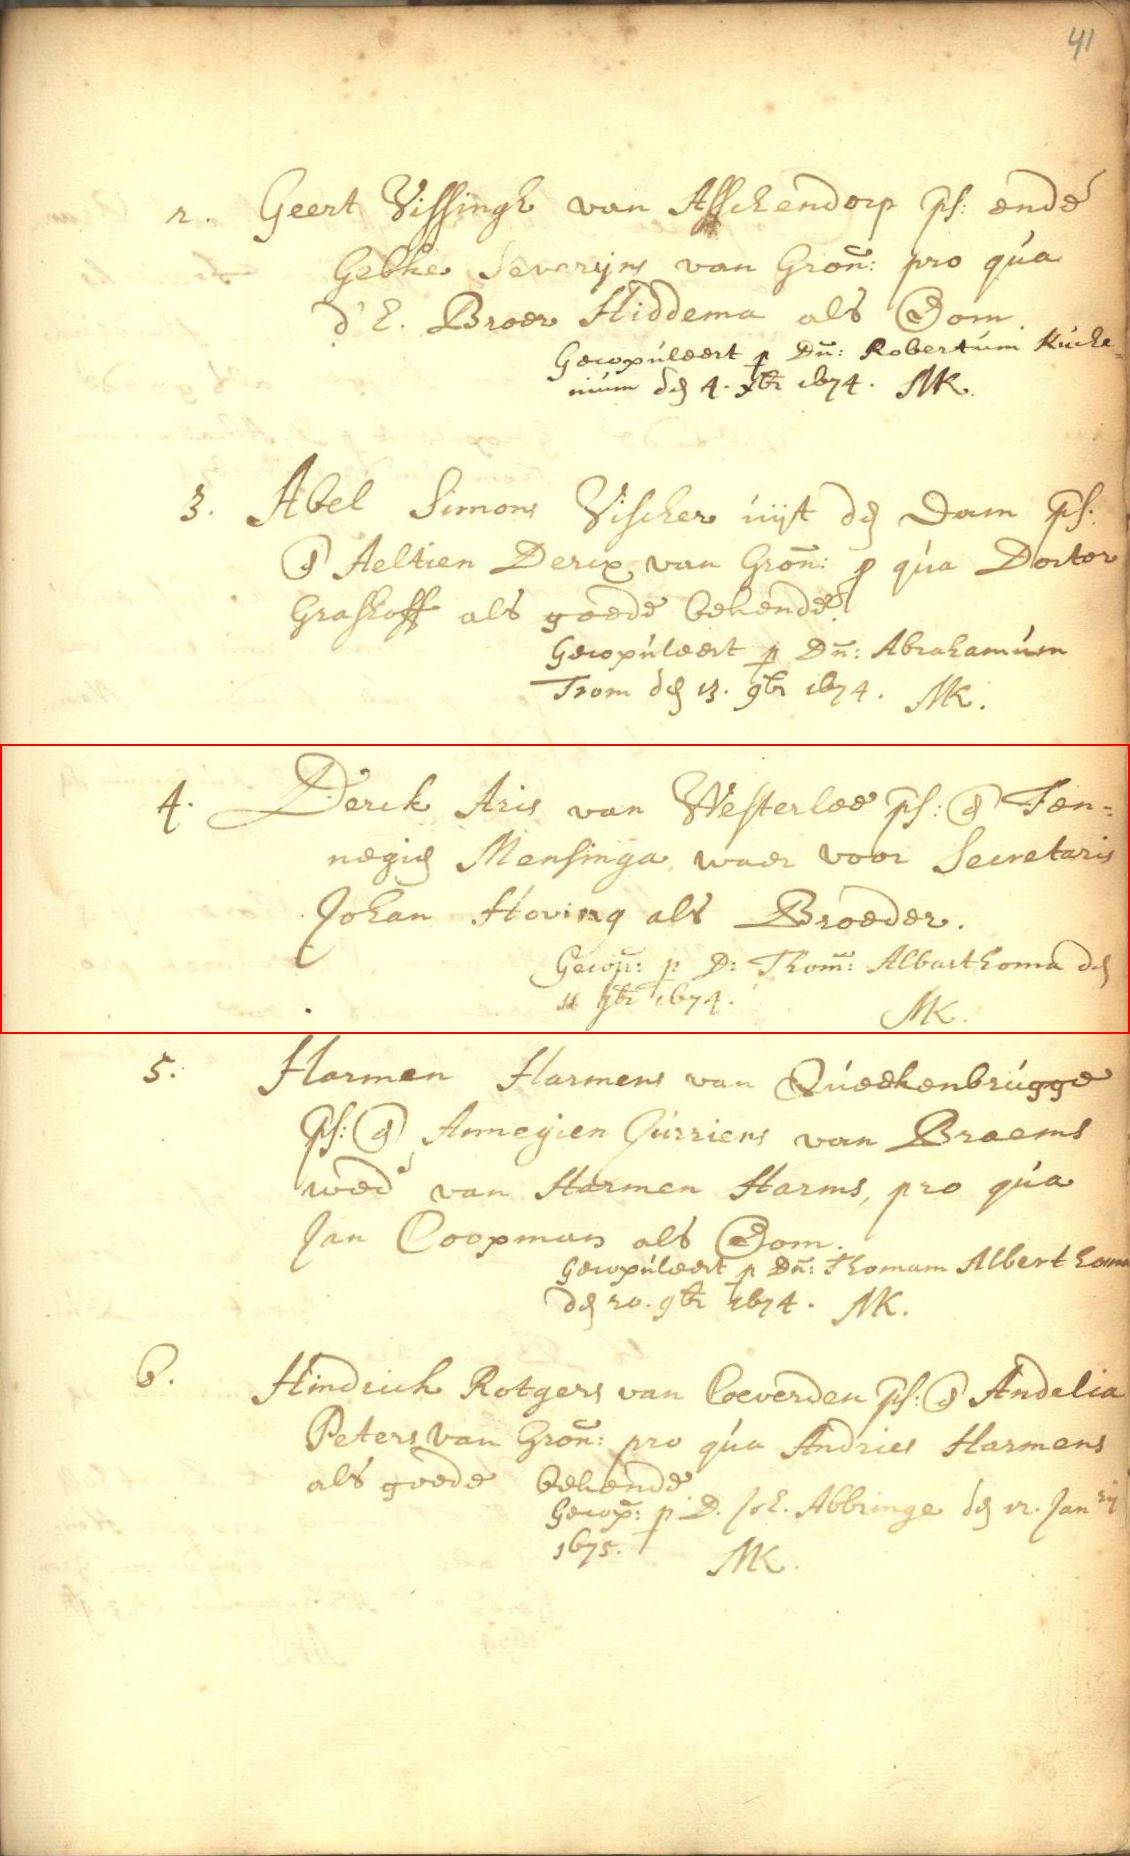 41
2. Geert Vissingh van Asschendorp ps: ende
Gebke Severijns van Gron̄: pro qua
d' E. Broer Hiddema als Oom.
Gecopuleert p Dn̄: Robertum Kuche-
nium den 4. xbr 1674. MK.
3. Abel Simons Vischer uijt den Dam ps:
e Aeltien Dercx van Gron̄: p qua Doctor
Grashoff als goede bekende
Gecopuleert p Dn̄: Abrahamum
Trom den 13. 9br 1674. MK.
4. Derck Aris van Westerlee ps: e Ten-
negien Mensinga, waer voor Secretaris
Johan Hoving als Broeder.
Gecop̄: p D: Thom̄: Albarthoma den
11 9br 1674. MK.
5. Harmen Harmens van Queekenbrugge
ps: e Annegien Jurriens van Braems
wed van Harmen Harms, pro qua
Jan Coopmans als Oom.
Gecopuleert p Dn̄: Thomam Alberthoma
den 20. 9br 1674. MK.
6. Hindrick Rotgers van Coeverden ps: e Andelia
Peters van Gron̄: pro qua Andries Harmens
als goede bekende
Gecop̄: p D. Joh. Abbringe den 12. Janrij
1675. MK.